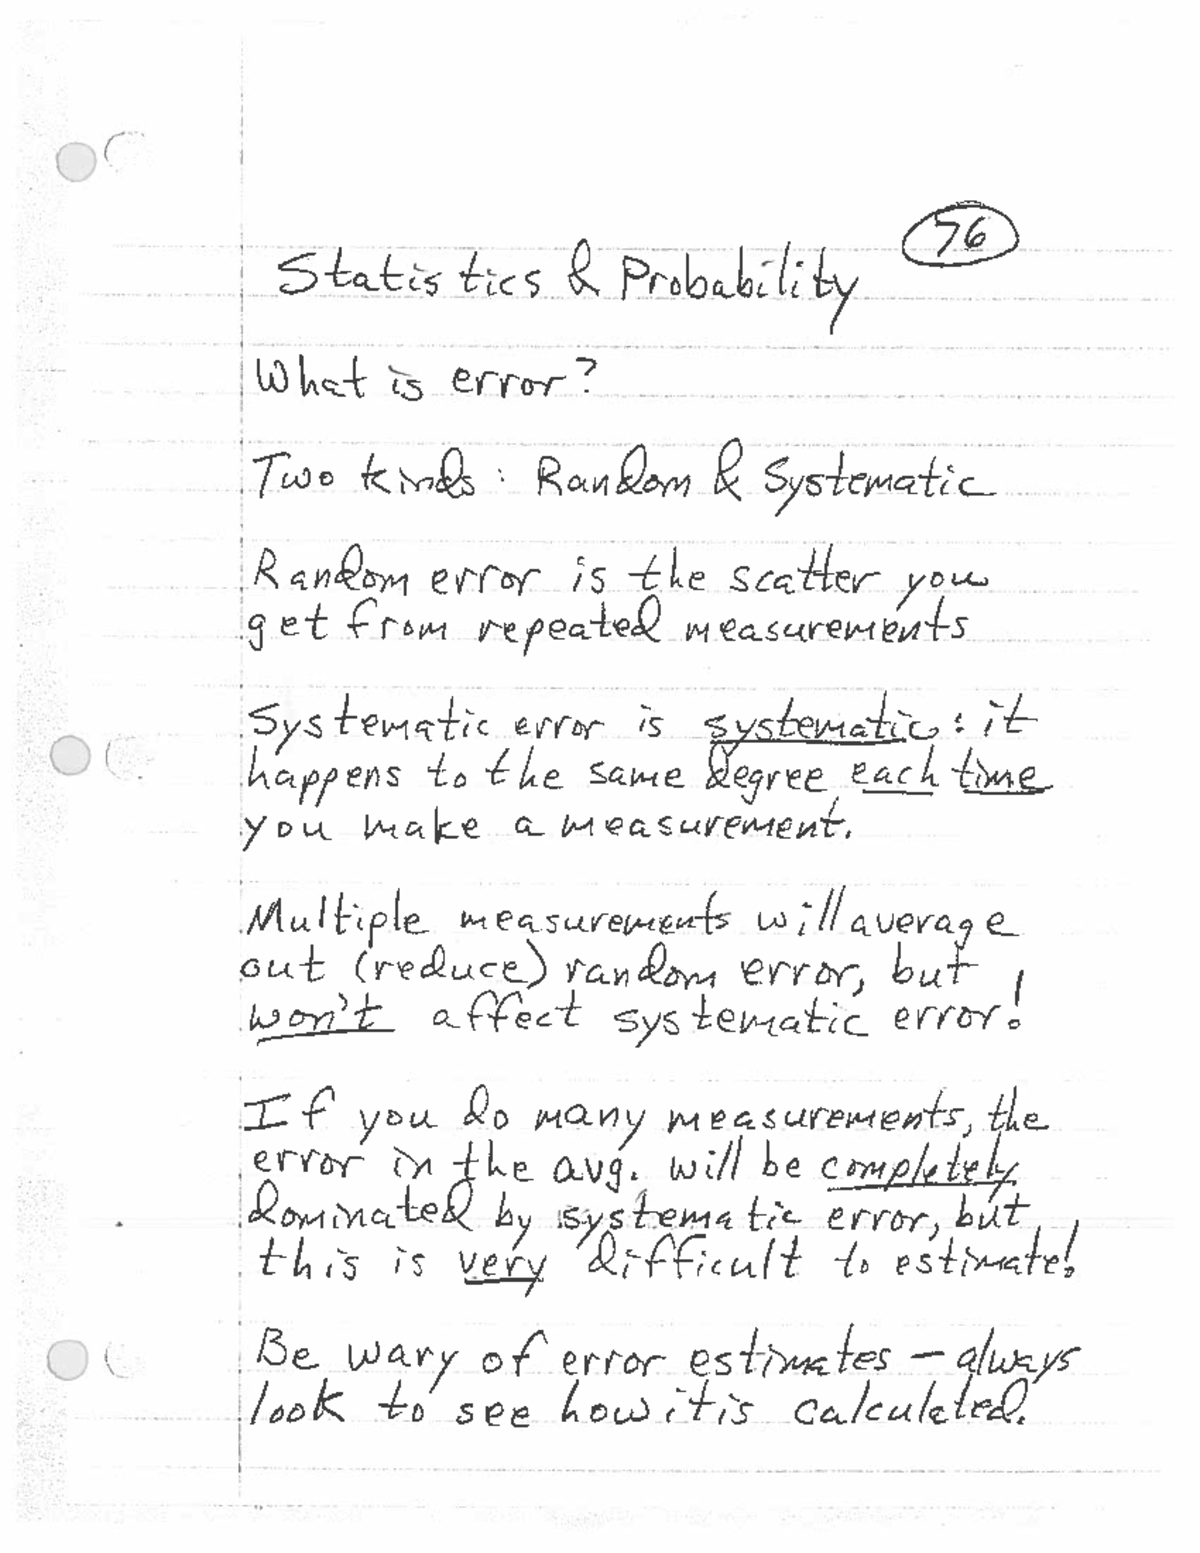 76
Statistics & Probability
What is error?
Two kinds: Random & Systematic
Random error is the scatter you
get from repeated measurements
Systematic error is systematic: it
happens to the same degree each time
you make a measurement.
Multiple measurements will average
out (reduce) random error, but
won't affect systematic error!
If you do many measurements, the
error in the avg. will be completely
dominated by systematic error, but
this is very difficult to estimate!
Be wary of error estimates – always
look to see how it is calculated.